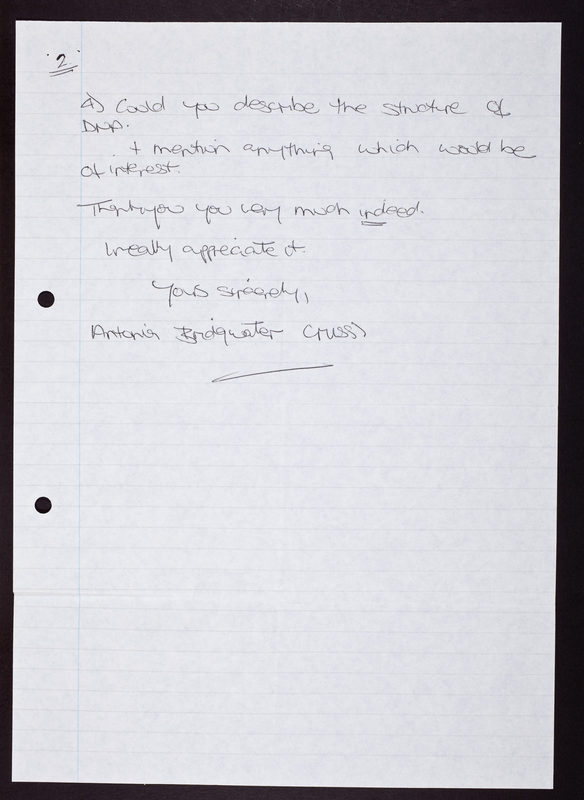 2
4) Could you describe the structure of
DNA.
+ mention anything which would be
of interest.
Thankyou you very much indeed.
I really appreciate it.
Yours sincerely,
Antonia Bridgwater (MISS)